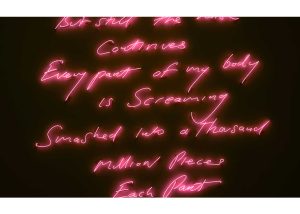 But still the
Continues
Every part of my body
is Screaming
Smashed into a Thousand
Million Pieces
Each Part